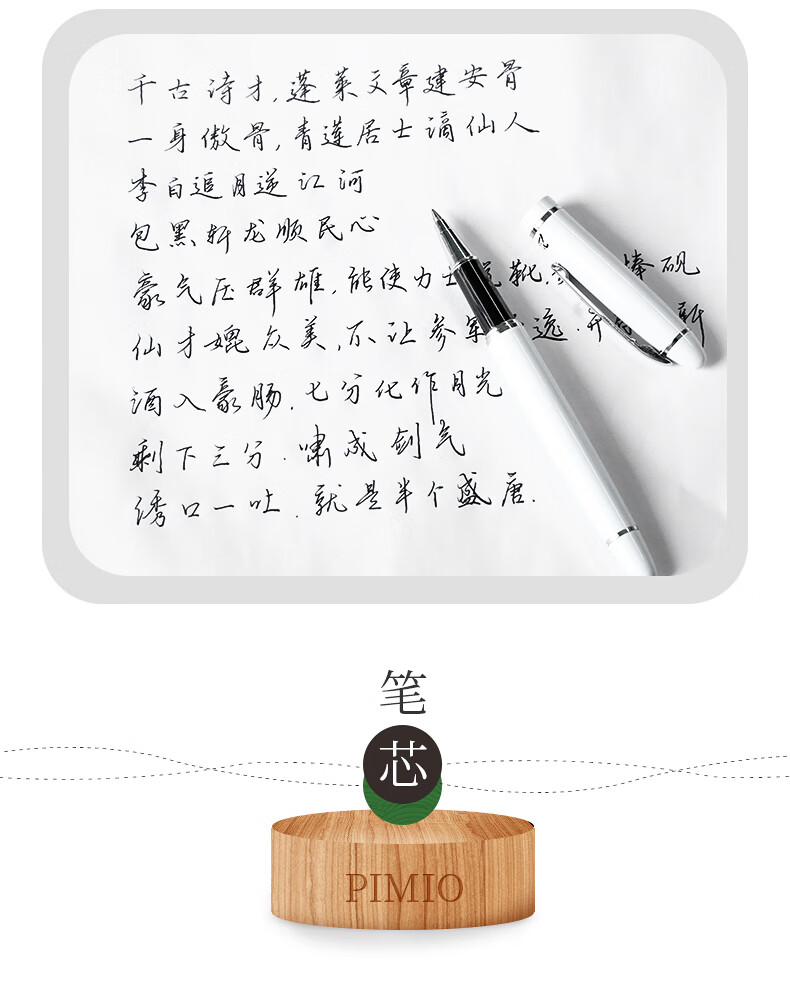 千古诗才,蓬莱文章建安骨
一身傲骨,青莲居士谪仙人
李白追月逆江河
包黑斩龙顺民心
豪气压群雄,能使力士脱靴, 捧砚
仙才媲众美,不让参军 逸.开府 新
酒入豪肠.七分化作月光
剩下三分.啸成剑气
绣口一吐.就是半个盛唐.
笔
芯
PIMIO